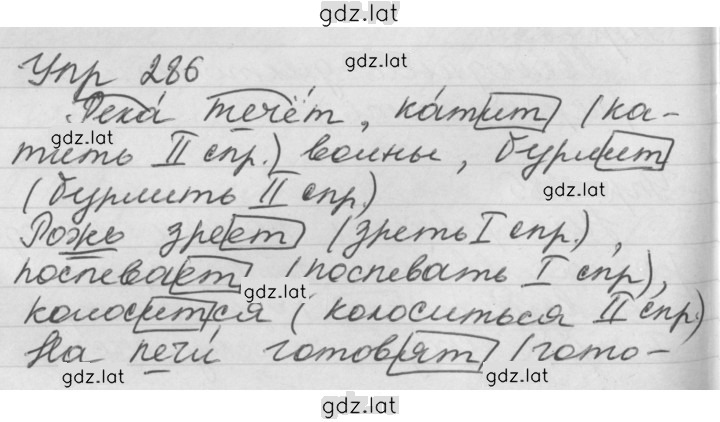 gdz.lat
Упр 286
gdz.lat
Река́ течёт, ка́тит (ка-
gdz.lat
тить II спр.) волны, бурлит
(бурлить II спр.)
gdz.lat
Рожь зреет (зреть I спр.),
поспевает (поспевать I спр),
gdz.lat
колосится (колоситься II спр.)
На печи́ готовят (гото-
gdz.lat
gdz.lat
gdz.lat